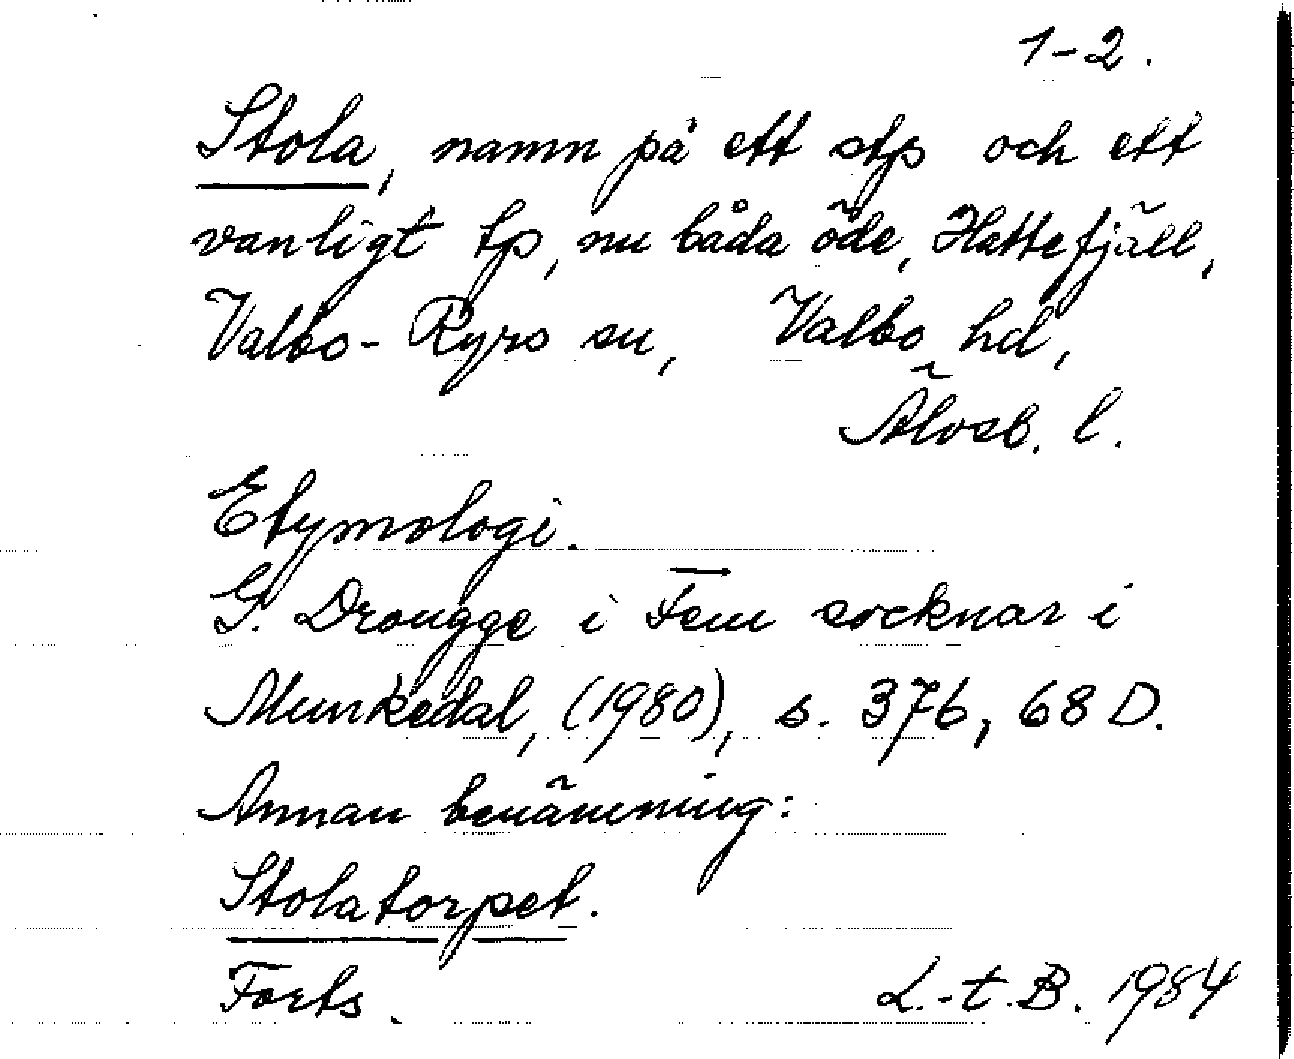 1-2.
Stola, namn på ett stp och ett
vanligt tp, nu båda öde, Hattefjäll,
Valbo-Ryrs sn, Valbo hd,
Älvsb. l.
Etymologi.
G. Drougge i Fem socknar i
Munkedal, (1980), s. 376, 68 D.
Annan benämning:
Stolatorpet.
Forts. L.-t.B. 1984